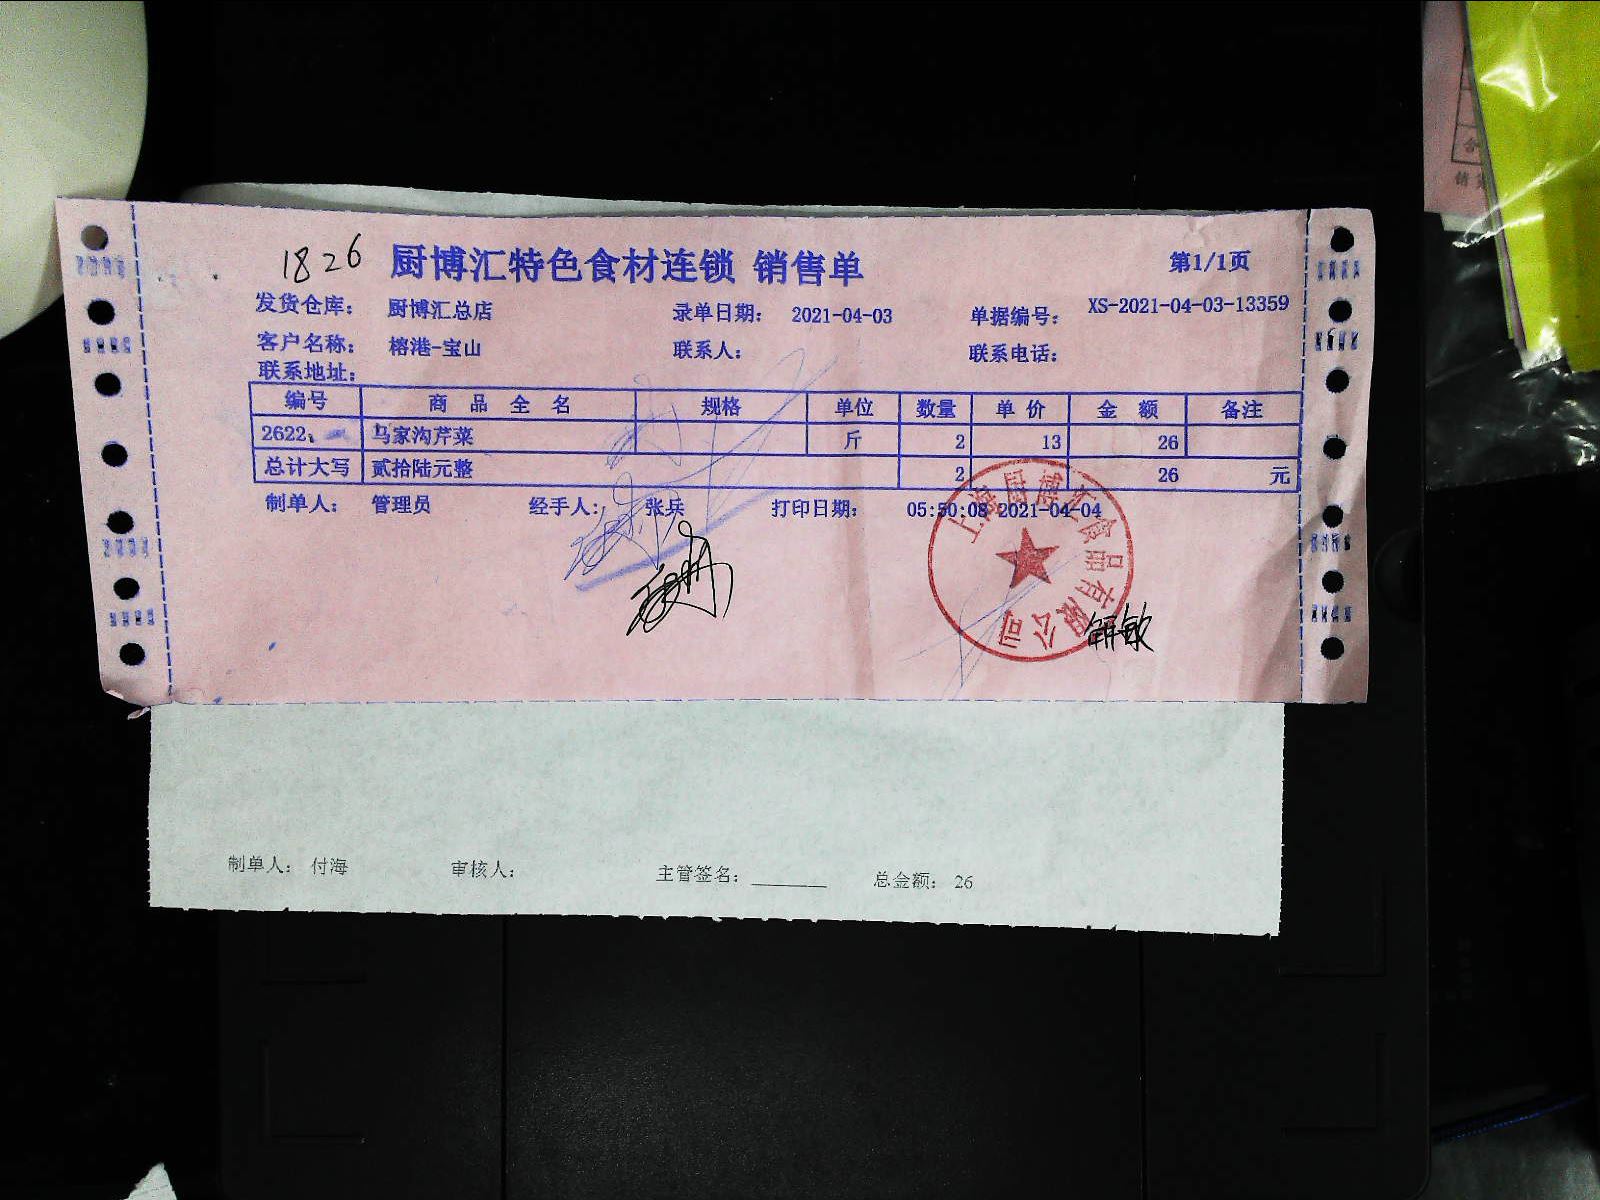 1826 厨博汇特色食材连锁 销售单 第1/1页
发货仓库： 厨博汇总店 录单日期： 2021-04-03 单据编号： XS-2021-04-03-13359
客户名称： 榕港-宝山 联系人： 联系电话：
联系地址：
编号 商品全名 规格 单位 数量 单价 金额 备注
2622、 马家沟芹菜 斤 2 13 26
总计大写 贰拾陆元整 2 26 元
制单人： 管理员 经手人： 张兵 打印日期： 05:50:08 2021-04-04
上海厨博汇食品有限公司
制单人： 付海 审核人： 主管签名：________ 总金额： 26